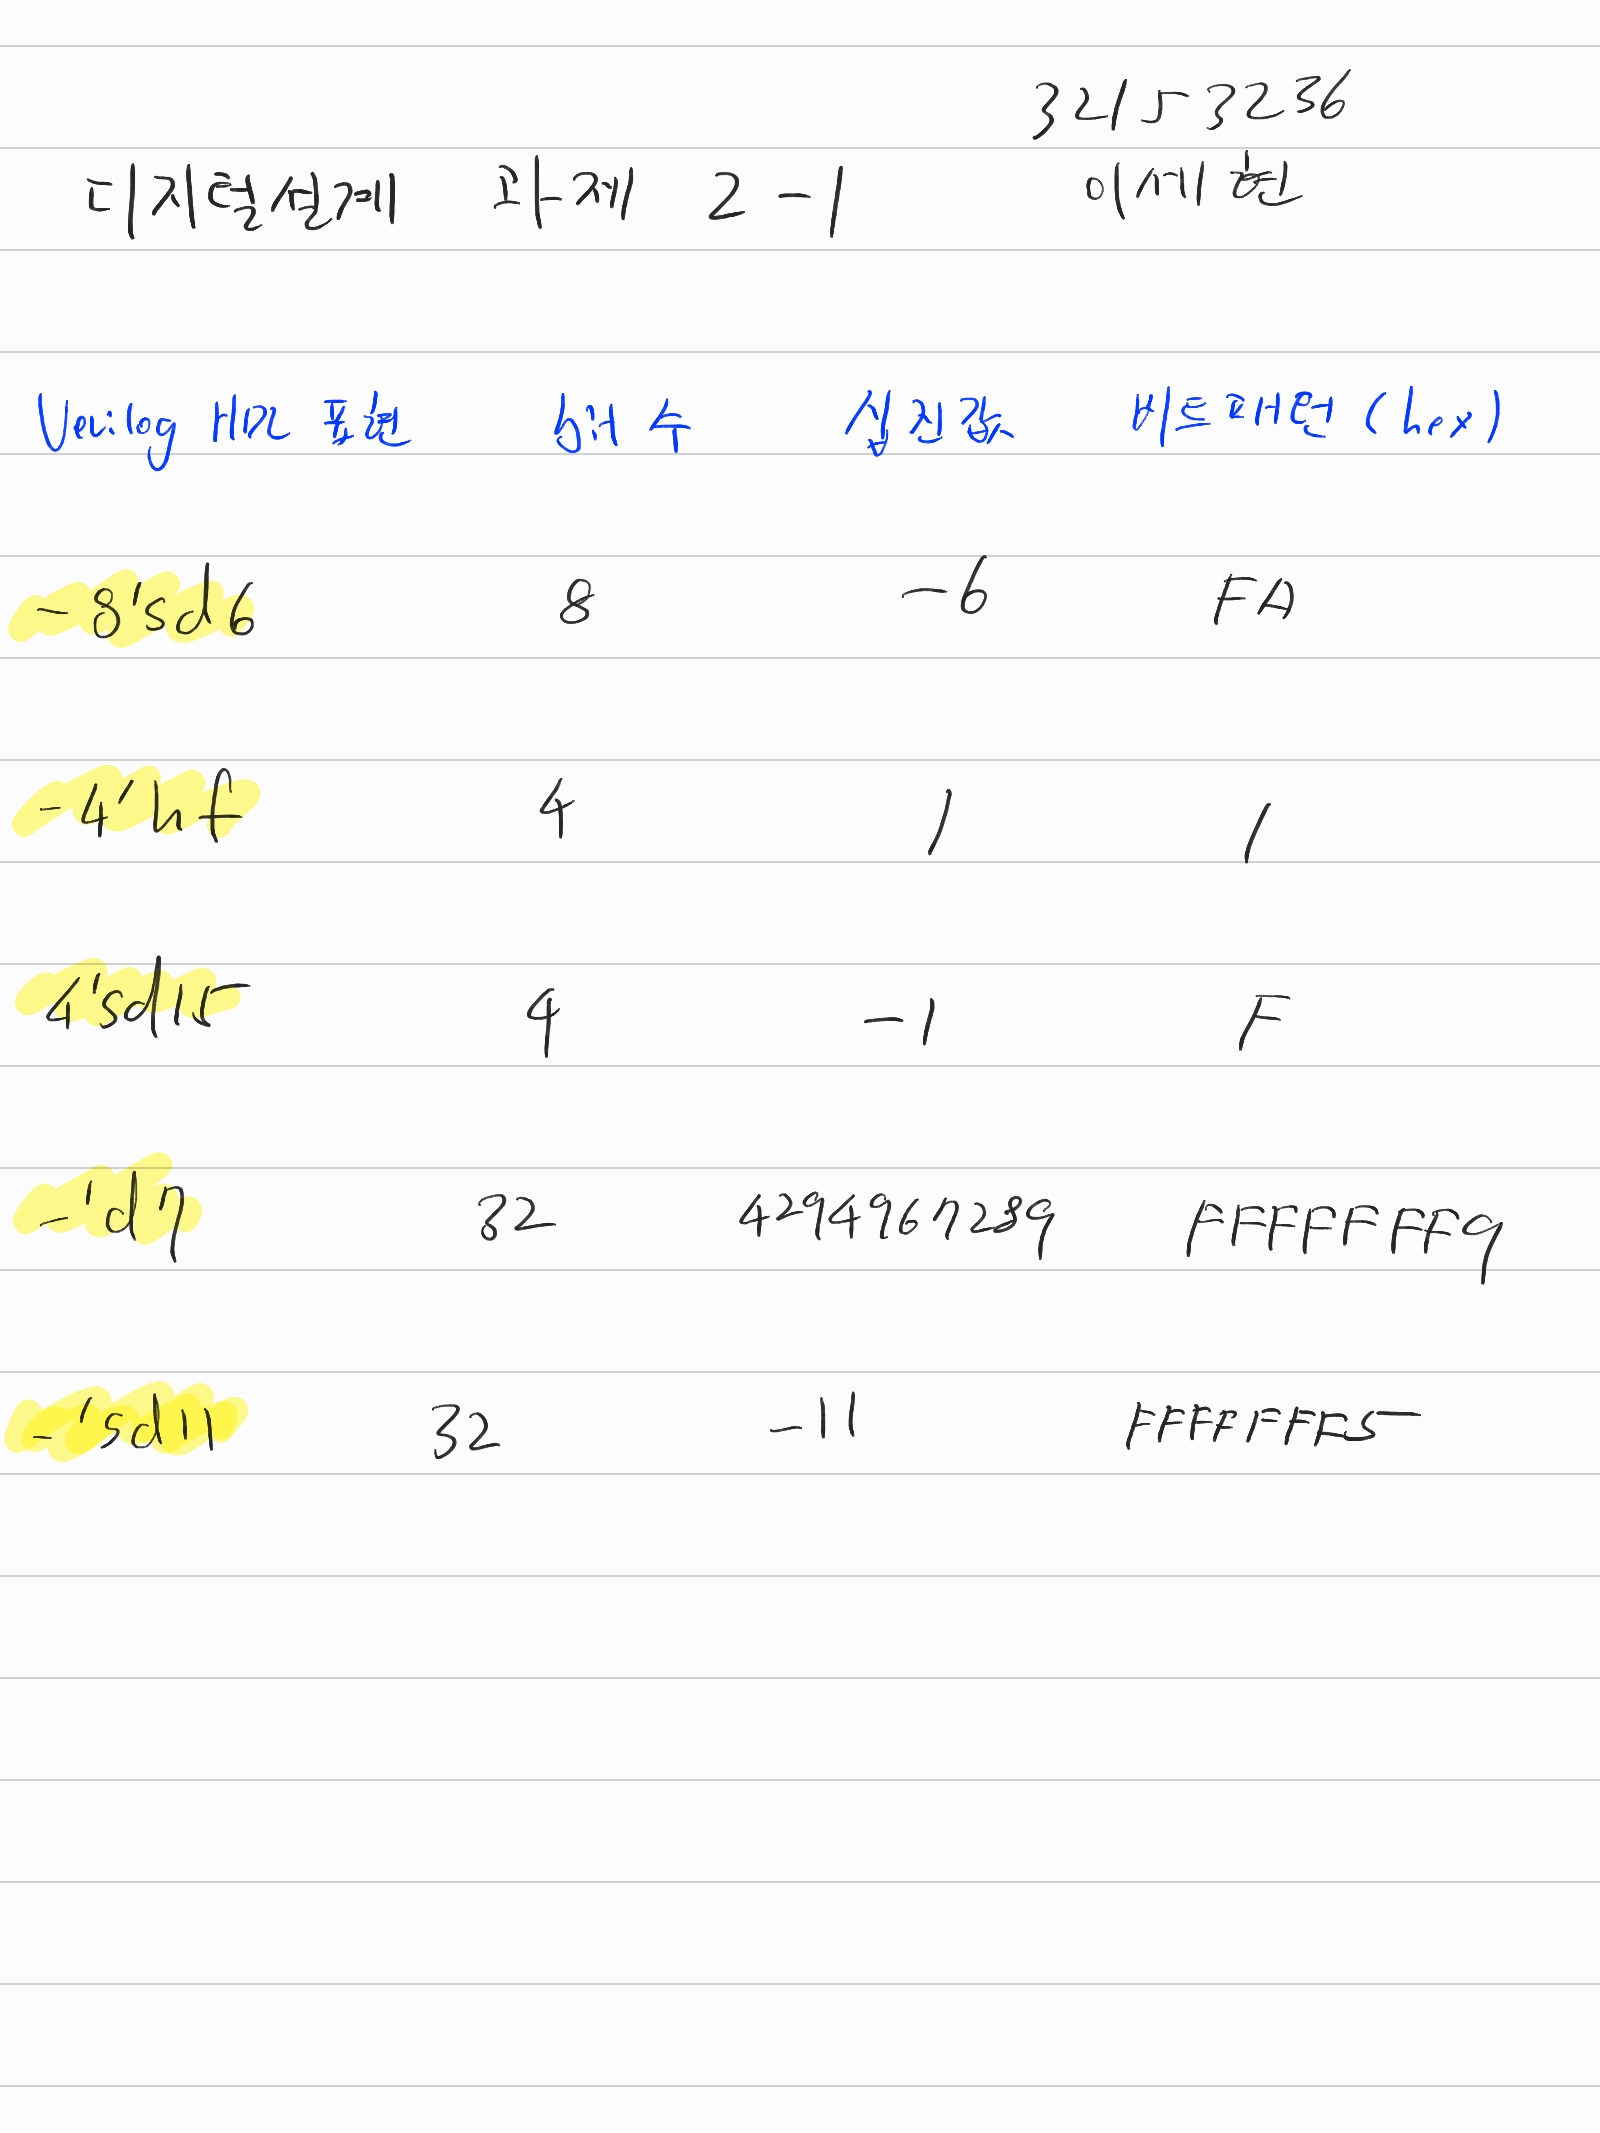 32153236
디지털설계 과제 2-1 이세현
Verilog HDL 표현 bit 수 십진값 비트패턴 (hex)
-8'sd6 8 -6 FA
-4'hf 4 1 1
4'sd15 4 -1 F
-'d7 32 4294967289 FFFFFFF9
-'sd11 32 -11 FFFFFFF5